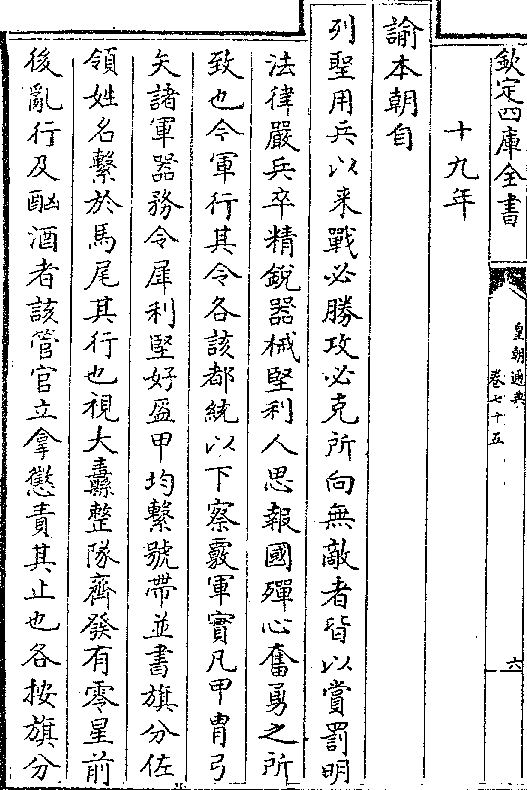 欽定四庫全書
皇朝通典
卷七十五
六
十九年
諭本朝自
列聖用兵以来戰必勝攻必克所向無敵者皆以賞罰明
法律嚴兵卒精銳器械堅利人思報國殫心奮勇之所
致也今軍行其令各該都統以下察覈軍實凡甲胄弓
矢諸軍器務令犀利堅好盔甲均繫號帶並書旗分佐
領姓名繫於馬尾其行也視大纛整隊齊發有零星前
後亂行及酗酒者該管官立拿懲責其止也各按旗分